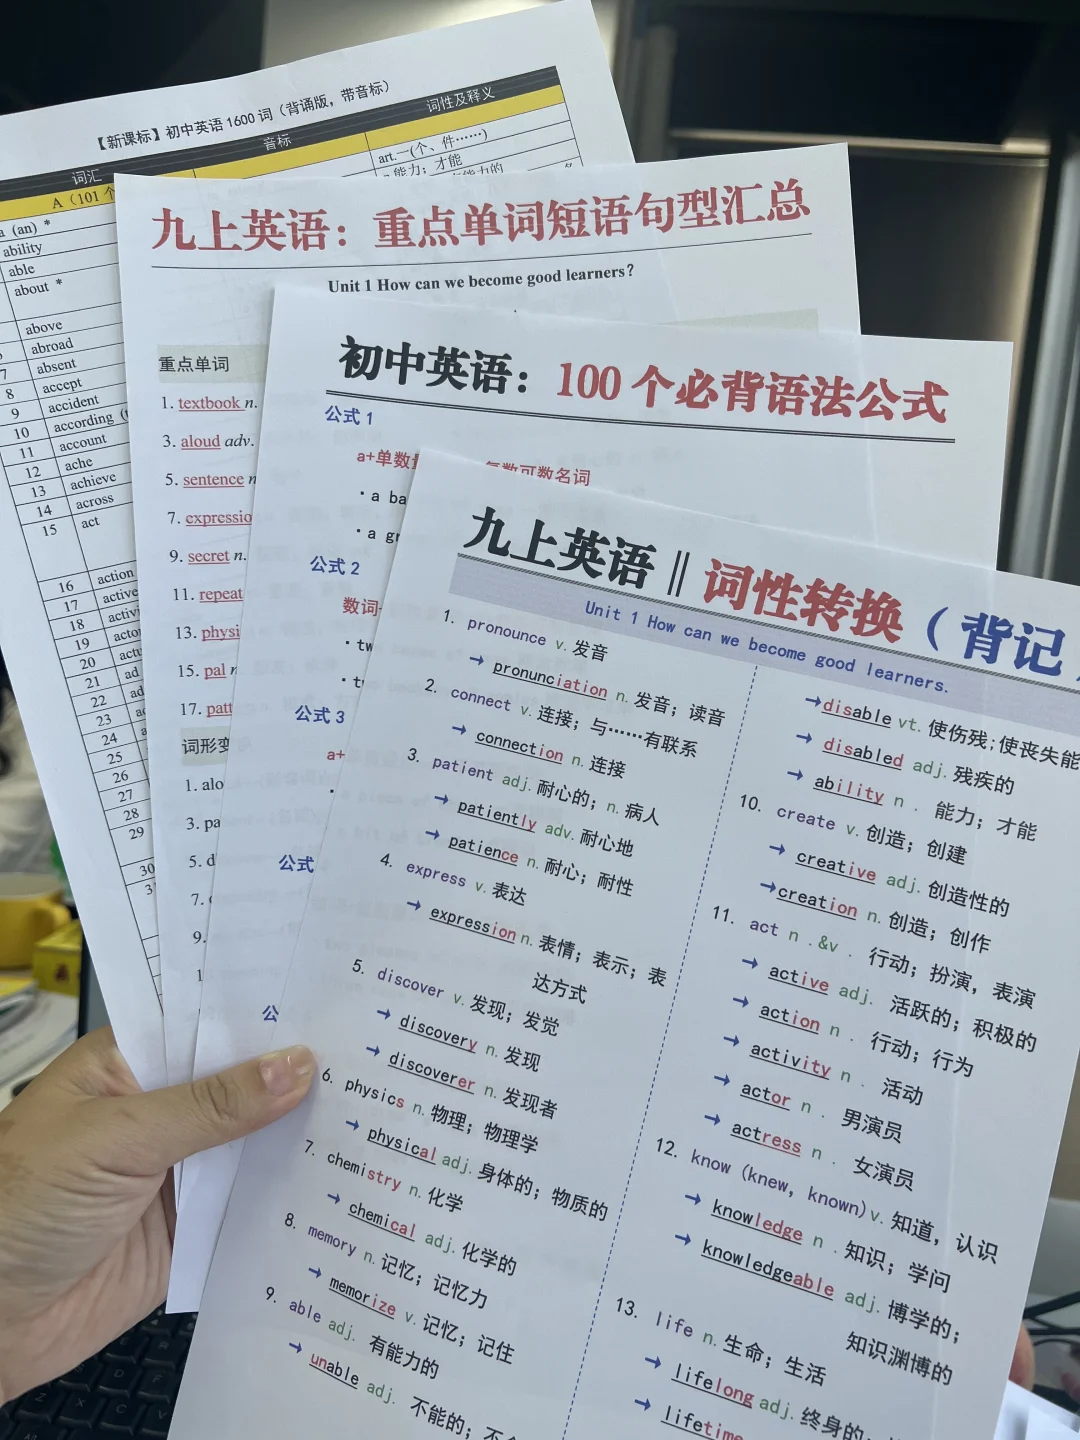 【新课标】初中英语1600词（背诵版，带音标）
词汇 音标 词性及释义
A（101个
a (an) * art.一(个、件……)
ability 能力；才能
able
about *
above
abroad
7 absent
8 accept
9 accident
10 according
11 account
12 ache
13 achieve
14 across
15 act
16 action
17 active
18
19
20
21 ad
22 ad
23
24
25
26
27
28
29
30
九上英语：重点单词短语句型汇总
Unit 1 How can we become good learners?
重点单词
1. textbook n.
3. aloud adv.
5. sentence n
7. expressio
9. secret n.
11. repeat
13. physi
15. pal n
17. patt
词形变
1. alo
3. pa
5. d
7.
9.
初中英语：100个必背语法公式
公式 1
a+单数 复数可数名词
·a ba
·a gr
公式 2
数词-
·tw
·t
公式 3
a+
公式
公
九上英语‖词性转换（背记
Unit 1 How can we become good learners.
1. pronounce v. 发音
→ pronunciation n. 发音；读音
2. connect v. 连接；与……有联系
→ connection n. 连接
3. patient adj. 耐心的；n. 病人
→ patiently adv. 耐心地
→ patience n. 耐心；耐性
4. express v. 表达
→ expression n. 表情；表示；表
达方式
5. discover v. 发现；发觉
→ discovery n. 发现
→ discoverer n. 发现者
6. physics n. 物理；物理学
→ physical adj. 身体的；物质的
7. chemistry n. 化学
→ chemical adj. 化学的
8. memory n. 记忆；记忆力
→ memorize v. 记忆；记住
9. able adj. 有能力的
→ unable adj. 不能的；不
→disable vt. 使伤残；使丧失能
→ disabled adj. 残疾的
→ ability n . 能力；才能
10. create v. 创造；创建
→ creative adj. 创造性的
→creation n. 创造；创作
11. act n .&v . 行动；扮演，表演
→ active adj. 活跃的；积极的
→ action n . 行动；行为
→ activity n . 活动
→ actor n . 男演员
→ actress n . 女演员
12. know (knew, known)v. 知道，认识
→ knowledge n . 知识；学问
→ knowledgeable adj. 博学的；
知识渊博的
13. life n. 生命；生活
→ lifelong adj. 终身的，
→ lifetime